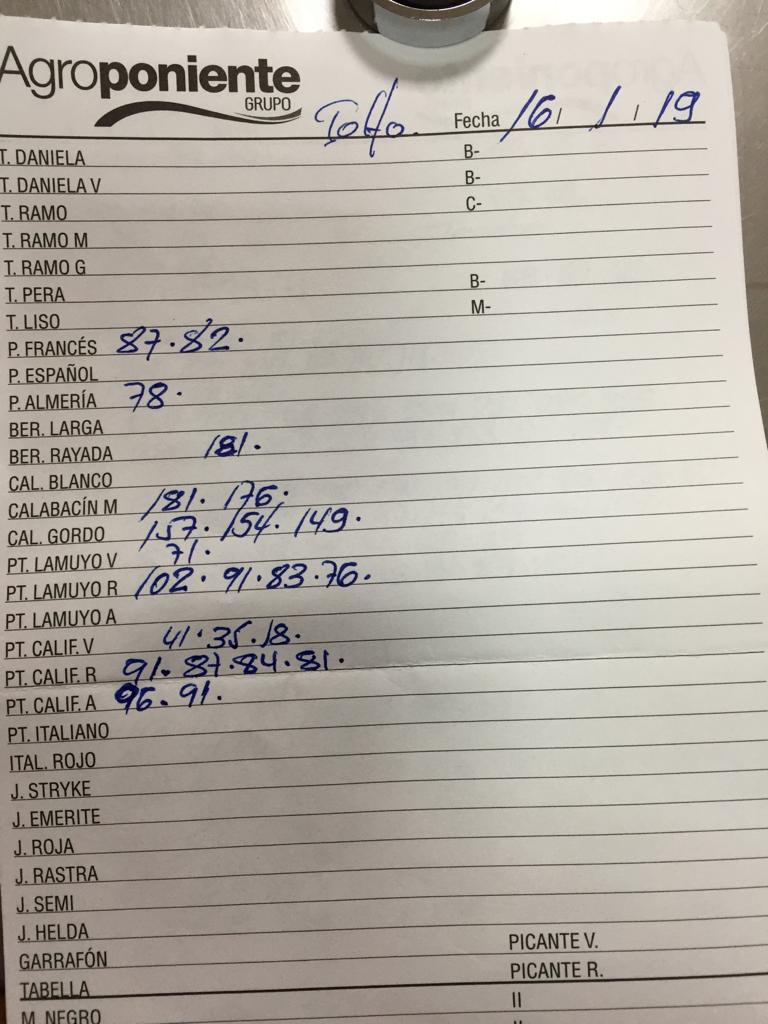 Agroponiente
GRUPO
Fecha 16 / 1 / 19
T. DANIELA B-
T. DANIELA V B-
T. RAMO C-
T. RAMO M
T. RAMO G
T. PERA B-
T. LISO M-
P. FRANCÉS 87. 82.
P. ESPAÑOL
P. ALMERÍA 78.
BER. LARGA
BER. RAYADA 181.
CAL. BLANCO
CALABACÍN M 181. 176.
CAL. GORDO 157. 154. 149.
PT. LAMUYO V 71.
PT. LAMUYO R 102. 91. 83. 76.
PT. LAMUYO A
PT. CALIF. V 41. 35. 18.
PT. CALIF. R 91. 87. 84. 81.
PT. CALIF. A 96. 91.
PT. ITALIANO
ITAL. ROJO
J. STRYKE
J. EMERITE
J. ROJA
J. RASTRA
J. SEMI
J. HELDA
GARRAFÓN PICANTE V.
TABELLA PICANTE R.
M. NEGRO II